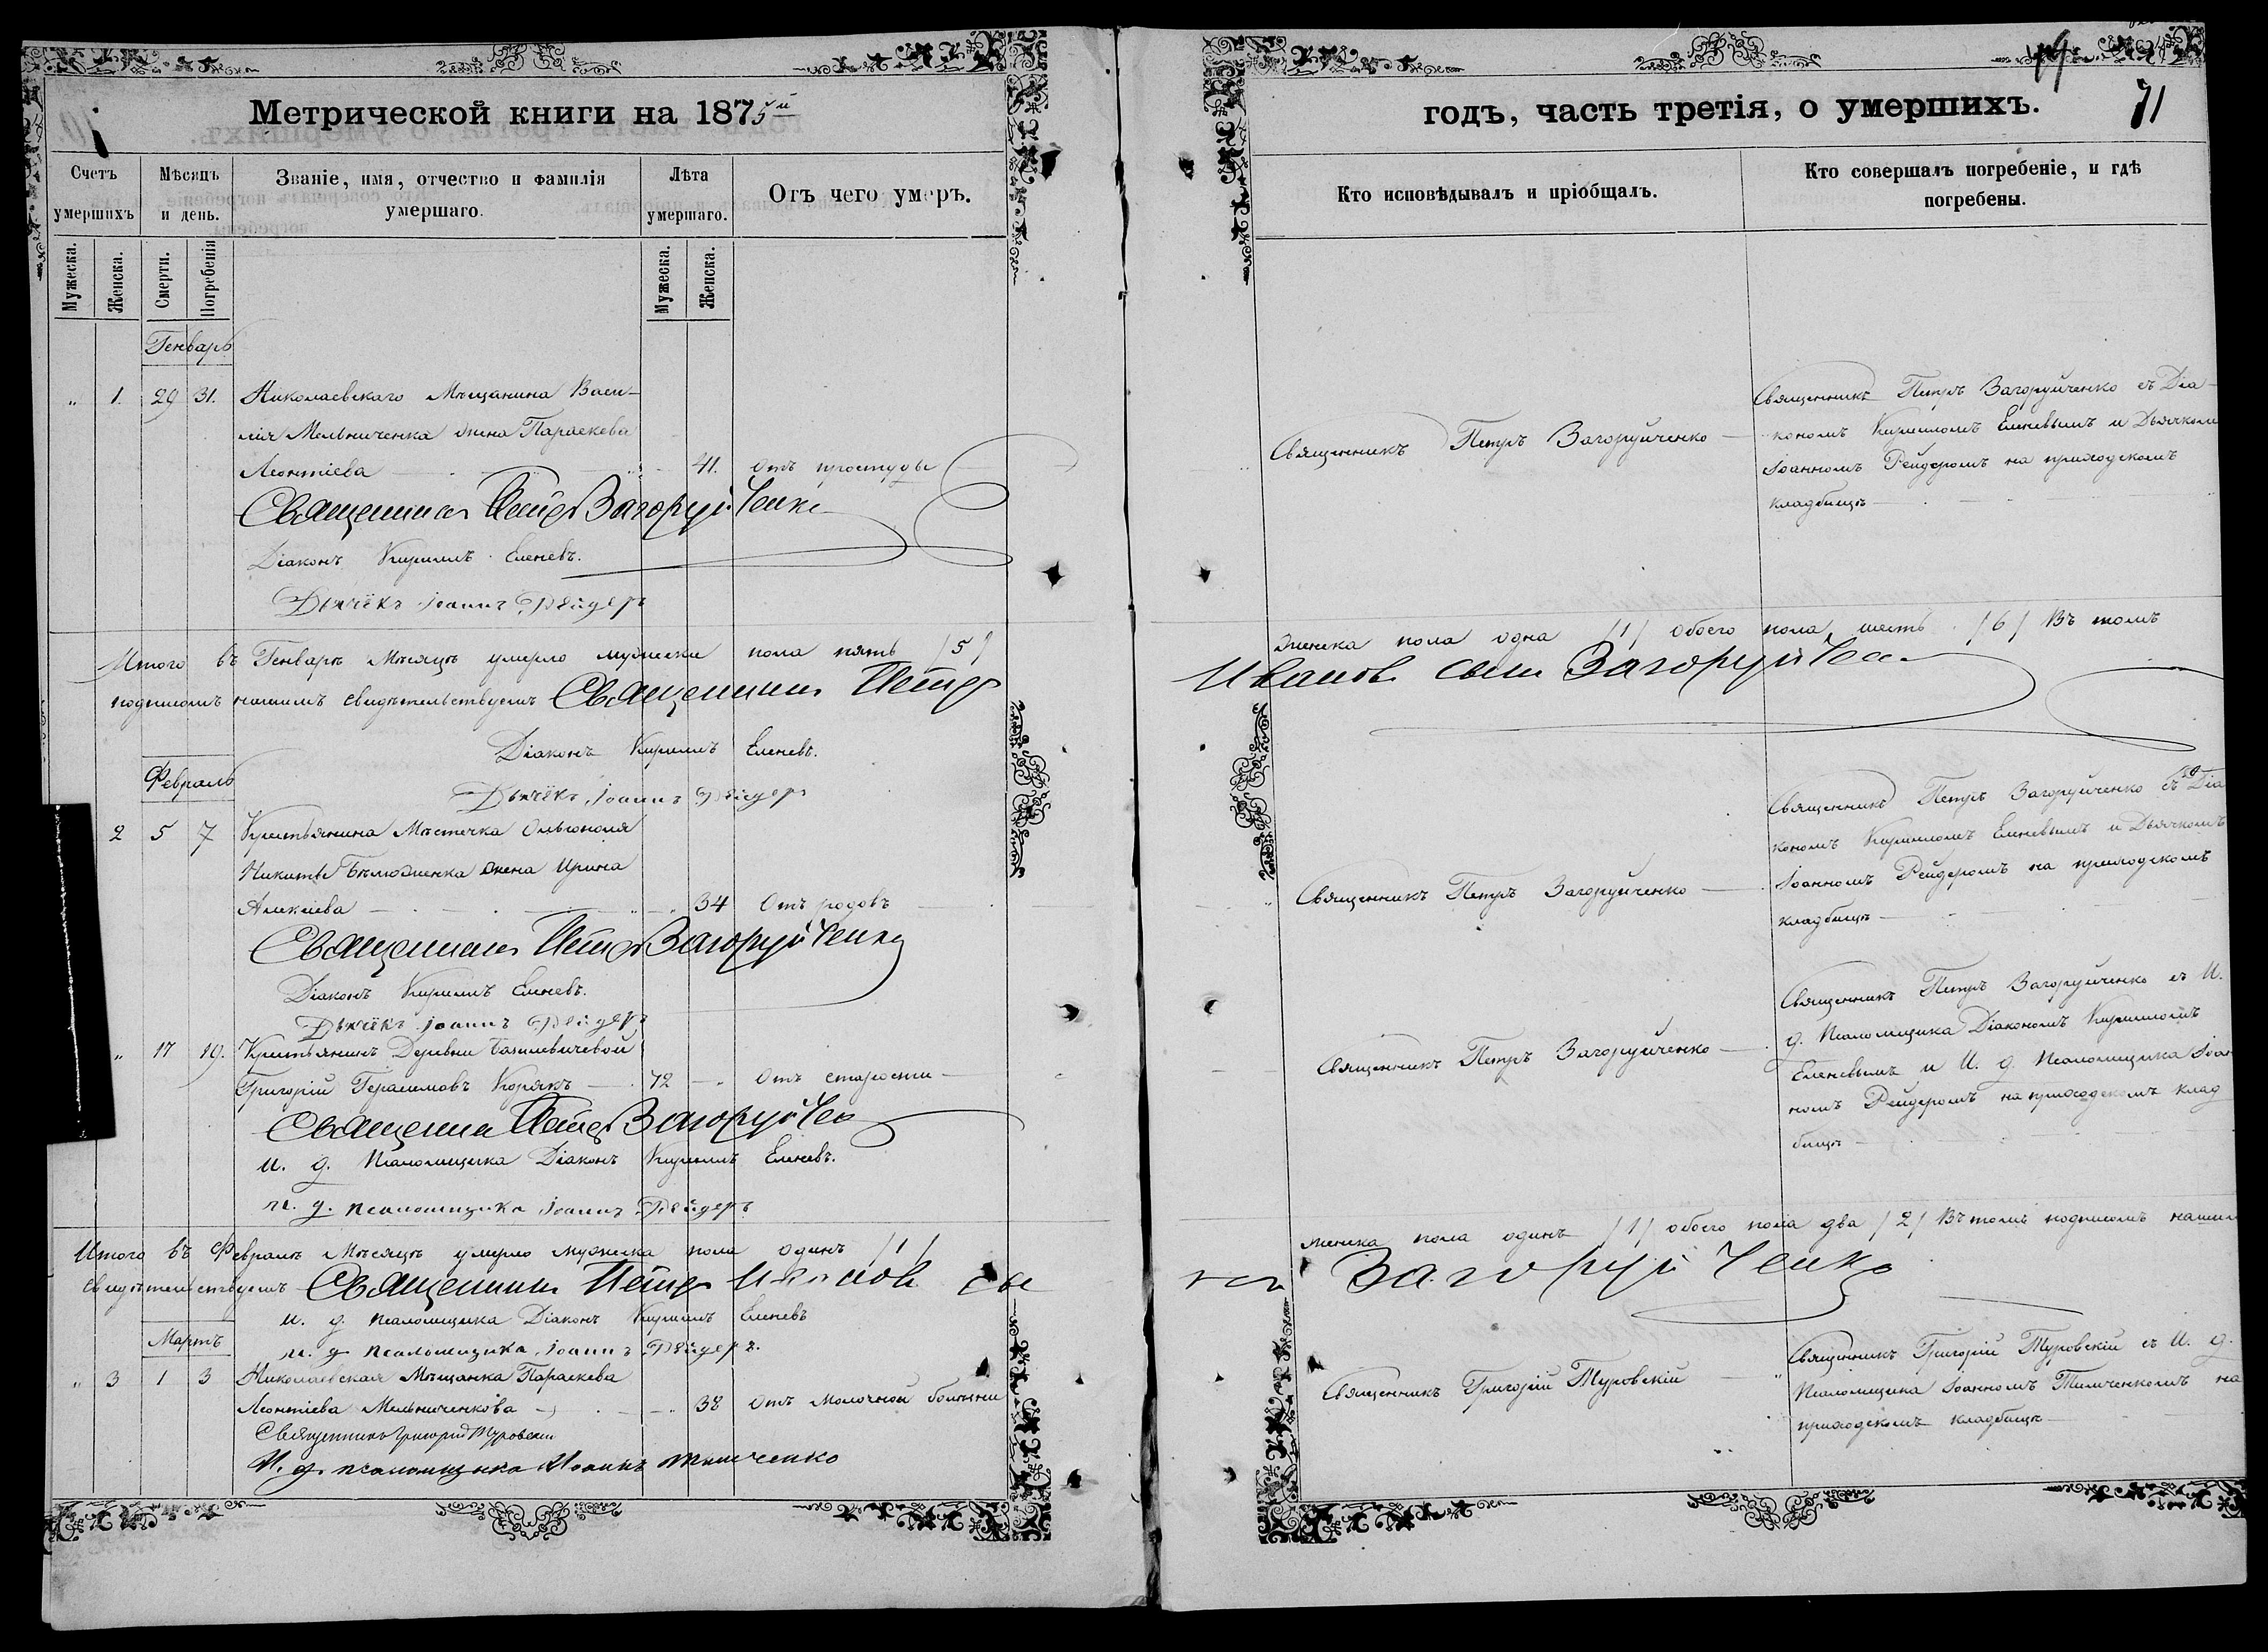 Метрической книги на 1875й
Счетъ умершихъ
Мѣсяцъ и день.
Званіе, имя, отчество и фамилія умершаго.
Лѣта умершаго.
Отъ чего умеръ.
Мужеска.
Женска.
Смерти.
Погребенія
Мужеска.
Женска.
Генварь
" 1. 29 31. Николаевскаго Мѣщанина Васи-
лія Мельниченка жена Параскева
Леонтіева 41. отъ простуды
Священникъ Петръ Загоруйченко
Діаконъ Кириллъ Еленевъ.
Дьячёкъ Іоаннъ Рейдеръ
Итого въ Генварѣ Мѣсяцѣ умерло мужеска пола пять /5/
подписомъ нашимъ свидѣтельствуемъ Священникъ Петръ
Діаконъ Кириллъ Еленевъ.
Дьячёкъ Іоаннъ Рейдеръ
Февраль
2 5 7 Крестьянина Мѣстечка Ольгополя
Никиты жена Ирина
Алексіева 34 Отъ родовъ
Священникъ Петръ Загоруйченко
Діаконъ Кириллъ Еленевъ.
Дьячёкъ Іоаннъ Рейдеръ
" 17 19. Крестьянинъ Деревни Базилевичевой
Григорій Герасимовъ Корякъ 72 " Отъ старости
Священникъ Петръ Загоруйченко
И. д. Псаломщика Діаконъ Кириллъ Еленевъ.
И. д. псаломщика Іоаннъ Рейдеръ
Итого въ Февралѣ Мѣсяцѣ умерло мужеска пола одинъ /1/
свидѣтельствуемъ Священникъ Петръ Ивановъ сы
И. д. псаломщика Діаконъ Кириллъ Еленевъ
И. д. псаломщика Іоаннъ Рейдеръ.
Мартъ
" 3 1 3 Николаевская Мѣщанка Параскева
Леонтіева Мельниченкова 38 Отъ молочной болѣзни
Священникъ Григорій Туровскій
И. д. псаломщика Іоаннъ Тимченко
годъ, часть третія, о умершихъ.
71
Кто исповѣдывалъ и пріобщалъ.
Кто совершалъ погребеніе, и гдѣ погребены.
Священникъ Петръ Загоруйченко
Священникъ Петръ Загоруйченко съ Діа-
кономъ Кирилломъ Еленевымъ и Дьячкомъ
Іоанномъ Рейдеромъ на приходскомъ
кладбищѣ
женска пола одна /1/ обоего пола шесть /6/ Въ томъ
Ивановъ сынъ Загоруйченко
Священникъ Петръ Загоруйченко
Священникъ Петръ Загоруйченко съ Діа
кономъ Кирилломъ Еленевымъ и Дьячкомъ
Іоанномъ Рейдеромъ на приходскомъ
кладбищѣ
Священникъ Петръ Загоруйченко
Священникъ Петръ Загоруйченко съ И.
д. Псаломщика Діакономъ Кирилломъ
Еленевымъ и И. д. Псаломщика Іоан
номъ Рейдеромъ на приходскомъ клад
бищѣ
женска пола одинъ /1/ обоего пола два /2/ Въ томъ подписомъ нашим
нъ Загоруйченко
Священникъ Григорій Туровскій
Священникъ Григорій Туровскій съ И. д.
Псаломщика Іоанномъ Тимченкомъ на
приходскомъ кладбищѣ